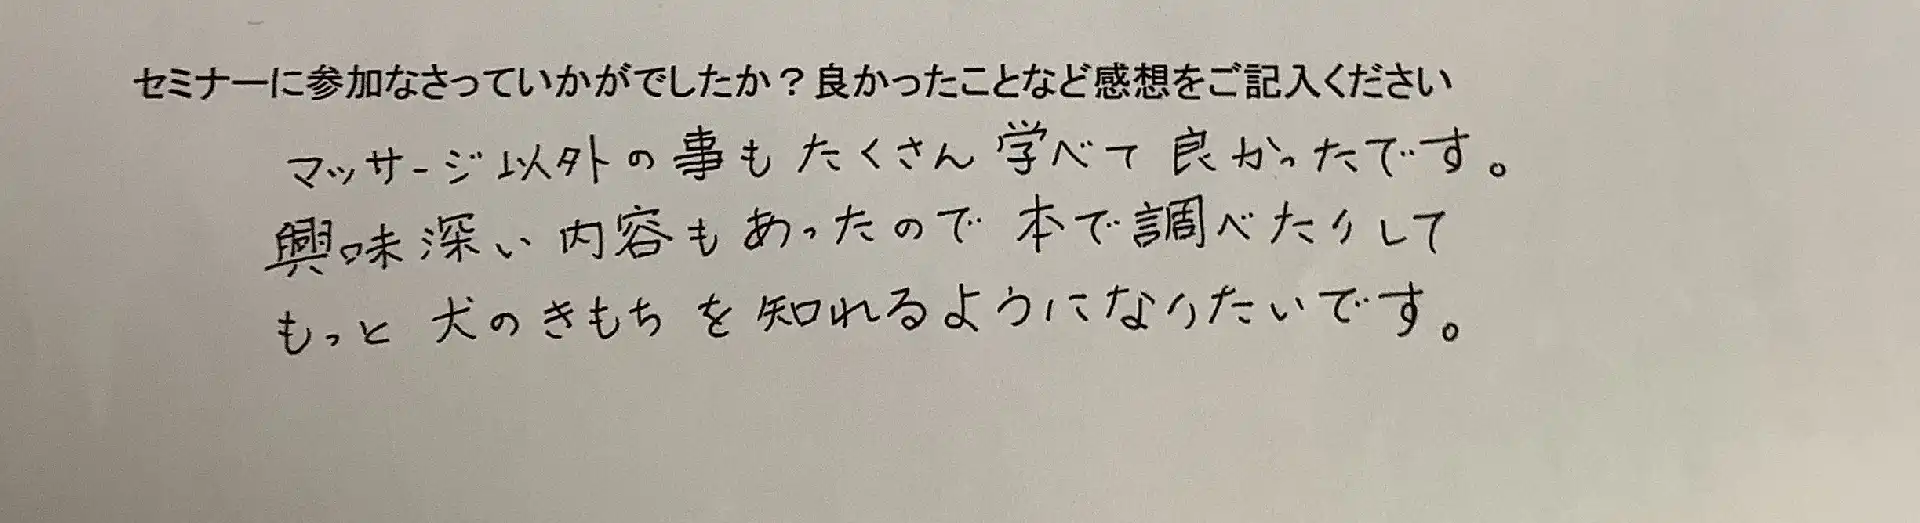 セミナーに参加なさっていかがでしたか？良かったことなど感想をご記入ください
マッサージ以外の事もたくさん学べて良かったです。
興味深い内容もあったので本で調べたりして
もっと犬のきもちを知れるようになりたいです。